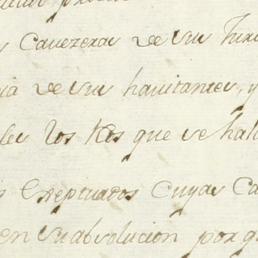 Cavezeras de su Juri
de sus havitantes, y
los que se hall
exeptuados cuyas Ca
en su absolucion por q